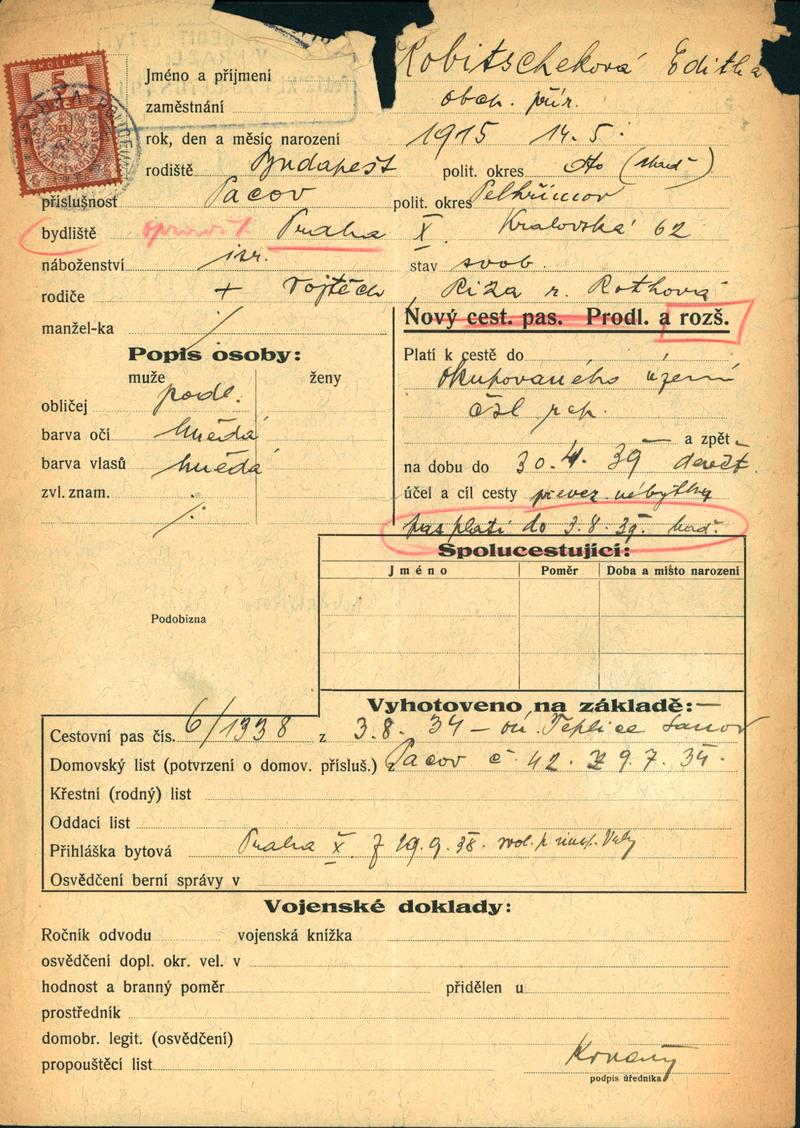 KOLEK
5
Jméno a příjmení Robitscheková Editha
zaměstnání obch. přír.
rok, den a měsíc narození 1915 14.5.
rodiště Budapešť polit. okres dto (Maď)
příslušnost Pacov polit. okres Pelhřimov
bydliště opravit Praha X. Kralovská 62
náboženství isr. stav svob.
rodiče + Vojtěch, Riza r. Rothová
manžel-ka ./.
Nový cest. pas. Prodl. a rozš.
Popis osoby:
muže ženy
obličej podl.
barva očí hnědá
barva vlasů hnědá
zvl. znam. ./.
Platí k cestě do
okupovaného území
čsl rep.
a zpět
na dobu do 30.4.39
účel a cíl cesty převez. nábytku
pas platí do 3.8.39
Spolucestující:
Jméno Poměr Doba a místo narození
Podobizna
Vyhotoveno na základě:
Cestovní pas čís. 6/1338 z 3.8.34 – Teplice Šanov
Domovský list (potvrzení o domov. přísluš.) z Pacov č 42. z 9.7.34.
Křestní (rodný) list
Oddací list
Přihláška bytová Praha X. z 19.9.38.
Osvědčení berní správy v
Vojenské doklady:
Ročník odvodu vojenská knížka
osvědčení dopl. okr. vel. v
hodnost a branný poměr přidělen u
prostředník
domobr. legit. (osvědčení)
propouštěcí list
podpis úředníka